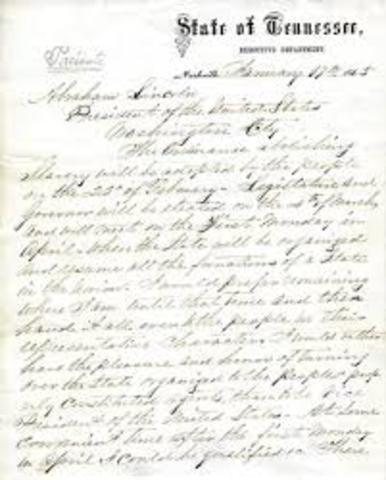 State of Tennessee,
EXECUTIVE DEPARTMENT
Private
Nashville January 17th 1865
Abraham Lincoln
President of the United States
Washington City
The Ordinance abolishing
Slavery will be adopted by the people
on the 22d of February - Legislature and
Governor will be elected on the 4th of March
and will meet on the First Monday in
April - when the State will be organized
and resume all the functions of a State
in the Union. I would prefer remaining
where I am until that time and then
hand it all over to the people in their
representative character. I would rather
have the pleasure and honor of turning
over the State organized to the people's prop
erly constituted agents, than to be Vice
President of the United States - At some
convenient time after the first Monday
in April I could be qualified &c. There